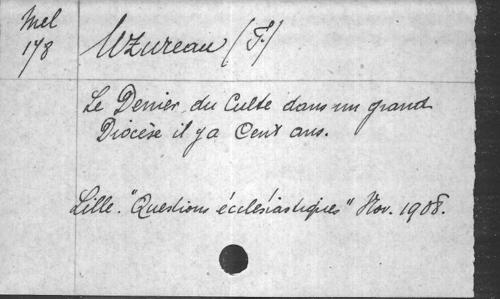 Mel
178
Uzureau (F.)
Le Denier du Culte dans un grand
Diocèse il y a Cent ans.
Lille. "Questions écclésiastiques" Nov. 1908.